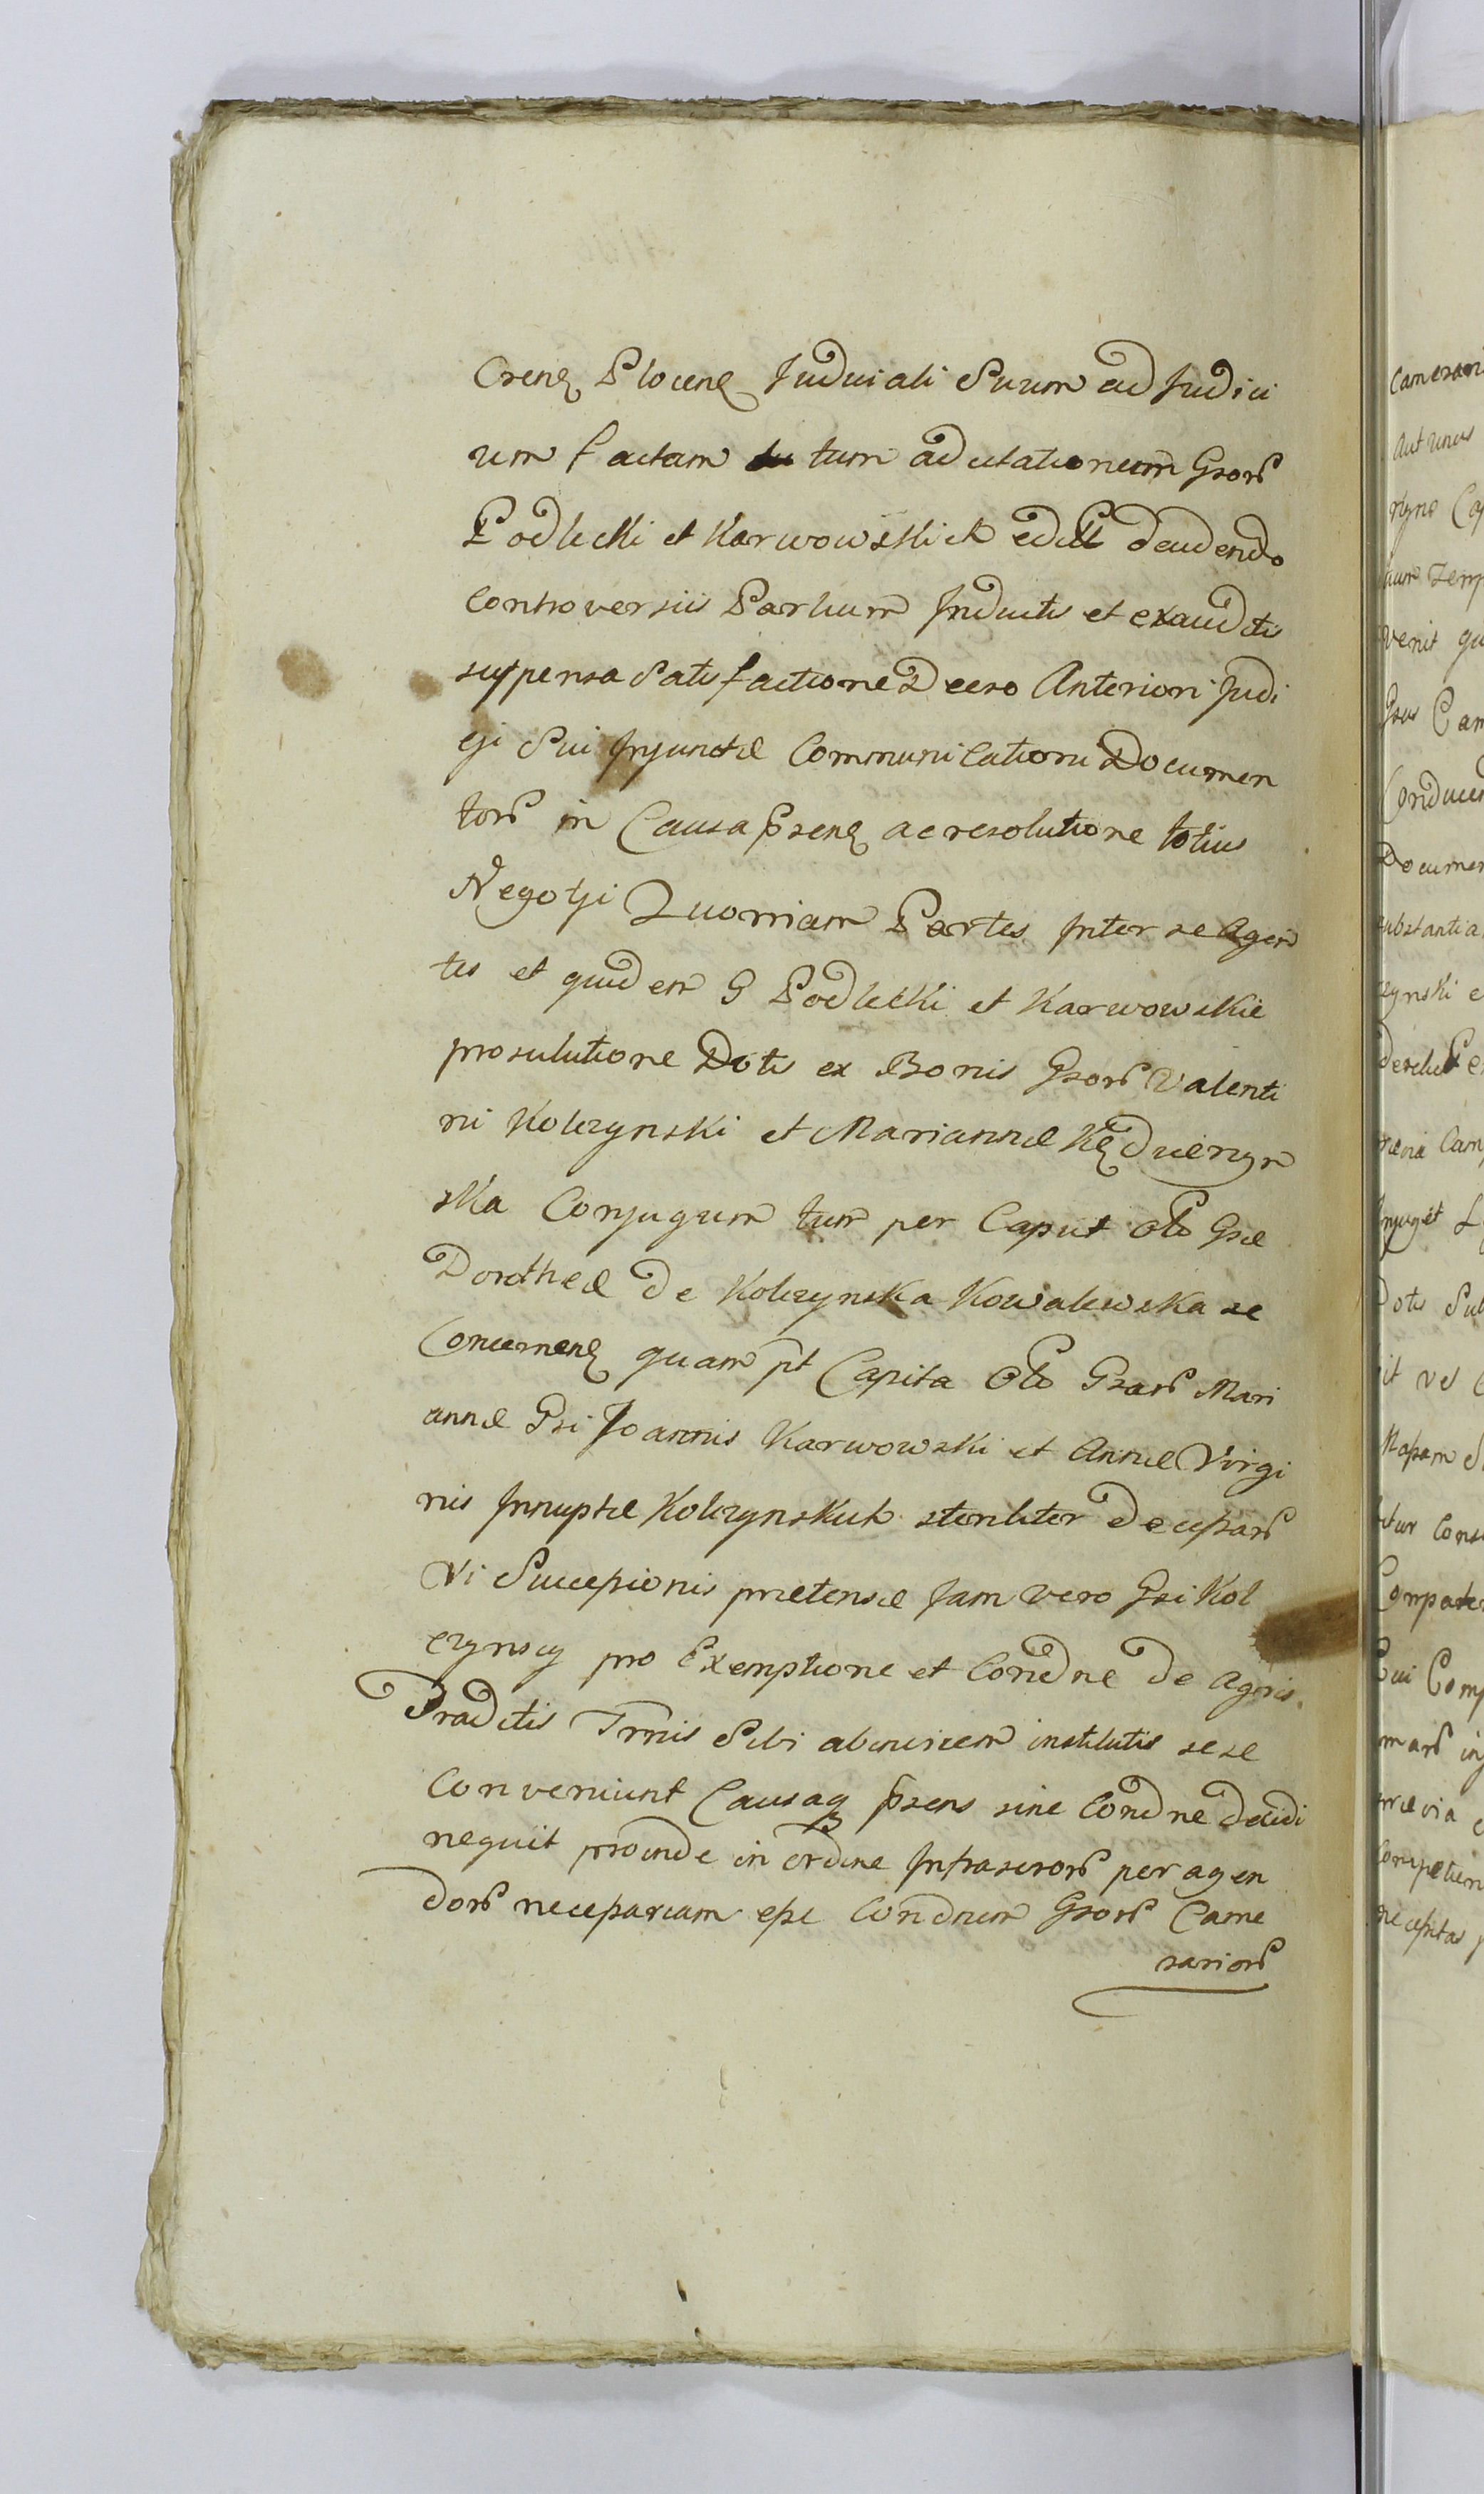 Crenȩ Plocenȩ Judiciali Suum ad Judici
um factam tum ad citationem Gsorū
Podlecki et Karwowskich edit decidendo
Controversiis Partium Inductis et exauditis
suspensa Satisfactione Decreto Anteriori Judi
cji Sui Injunctæ Communicationi Documen
torū in Causa pſsenȩ ac resolutione totius
Negotji Quoniam Partes Inter se Agen
tes et quidem G Podlecki et Karwowskie
pro solutione Dotis ex Bonis Gsorū Valenti
ni Kolczynski et Mariannæ Kędzierzyn
ska Conjugum tum per Caput olo Gsæ
Dorotheæ De Kolczynska Kowalewska se
Concernenȩ quam pt Capita Olo Gsarū Mari
annæ Gsi Joannis Karwowski et Annæ Virgi
nis Innuptæ Kolczynskich steriliter Decessarū
Vi Successionis prætensæ Jam vero Gsi Kol
czynscy pro Exemptione et Condne de Agris
Traditis Trmis Sibi abinvicem institutis sese
Conveniunt Causaqȝ pſsens sine Condne decidi
nequit proinde in ordine Infrascrorū peragen
dorū necessariam esse Condnem Gsorū Came
rariorū
Camerari
Aut unus
venit
Conduc
Documen
substantia
czynski e
Dotis Sub
Mapam
Cui Comp
prævia
necessitas